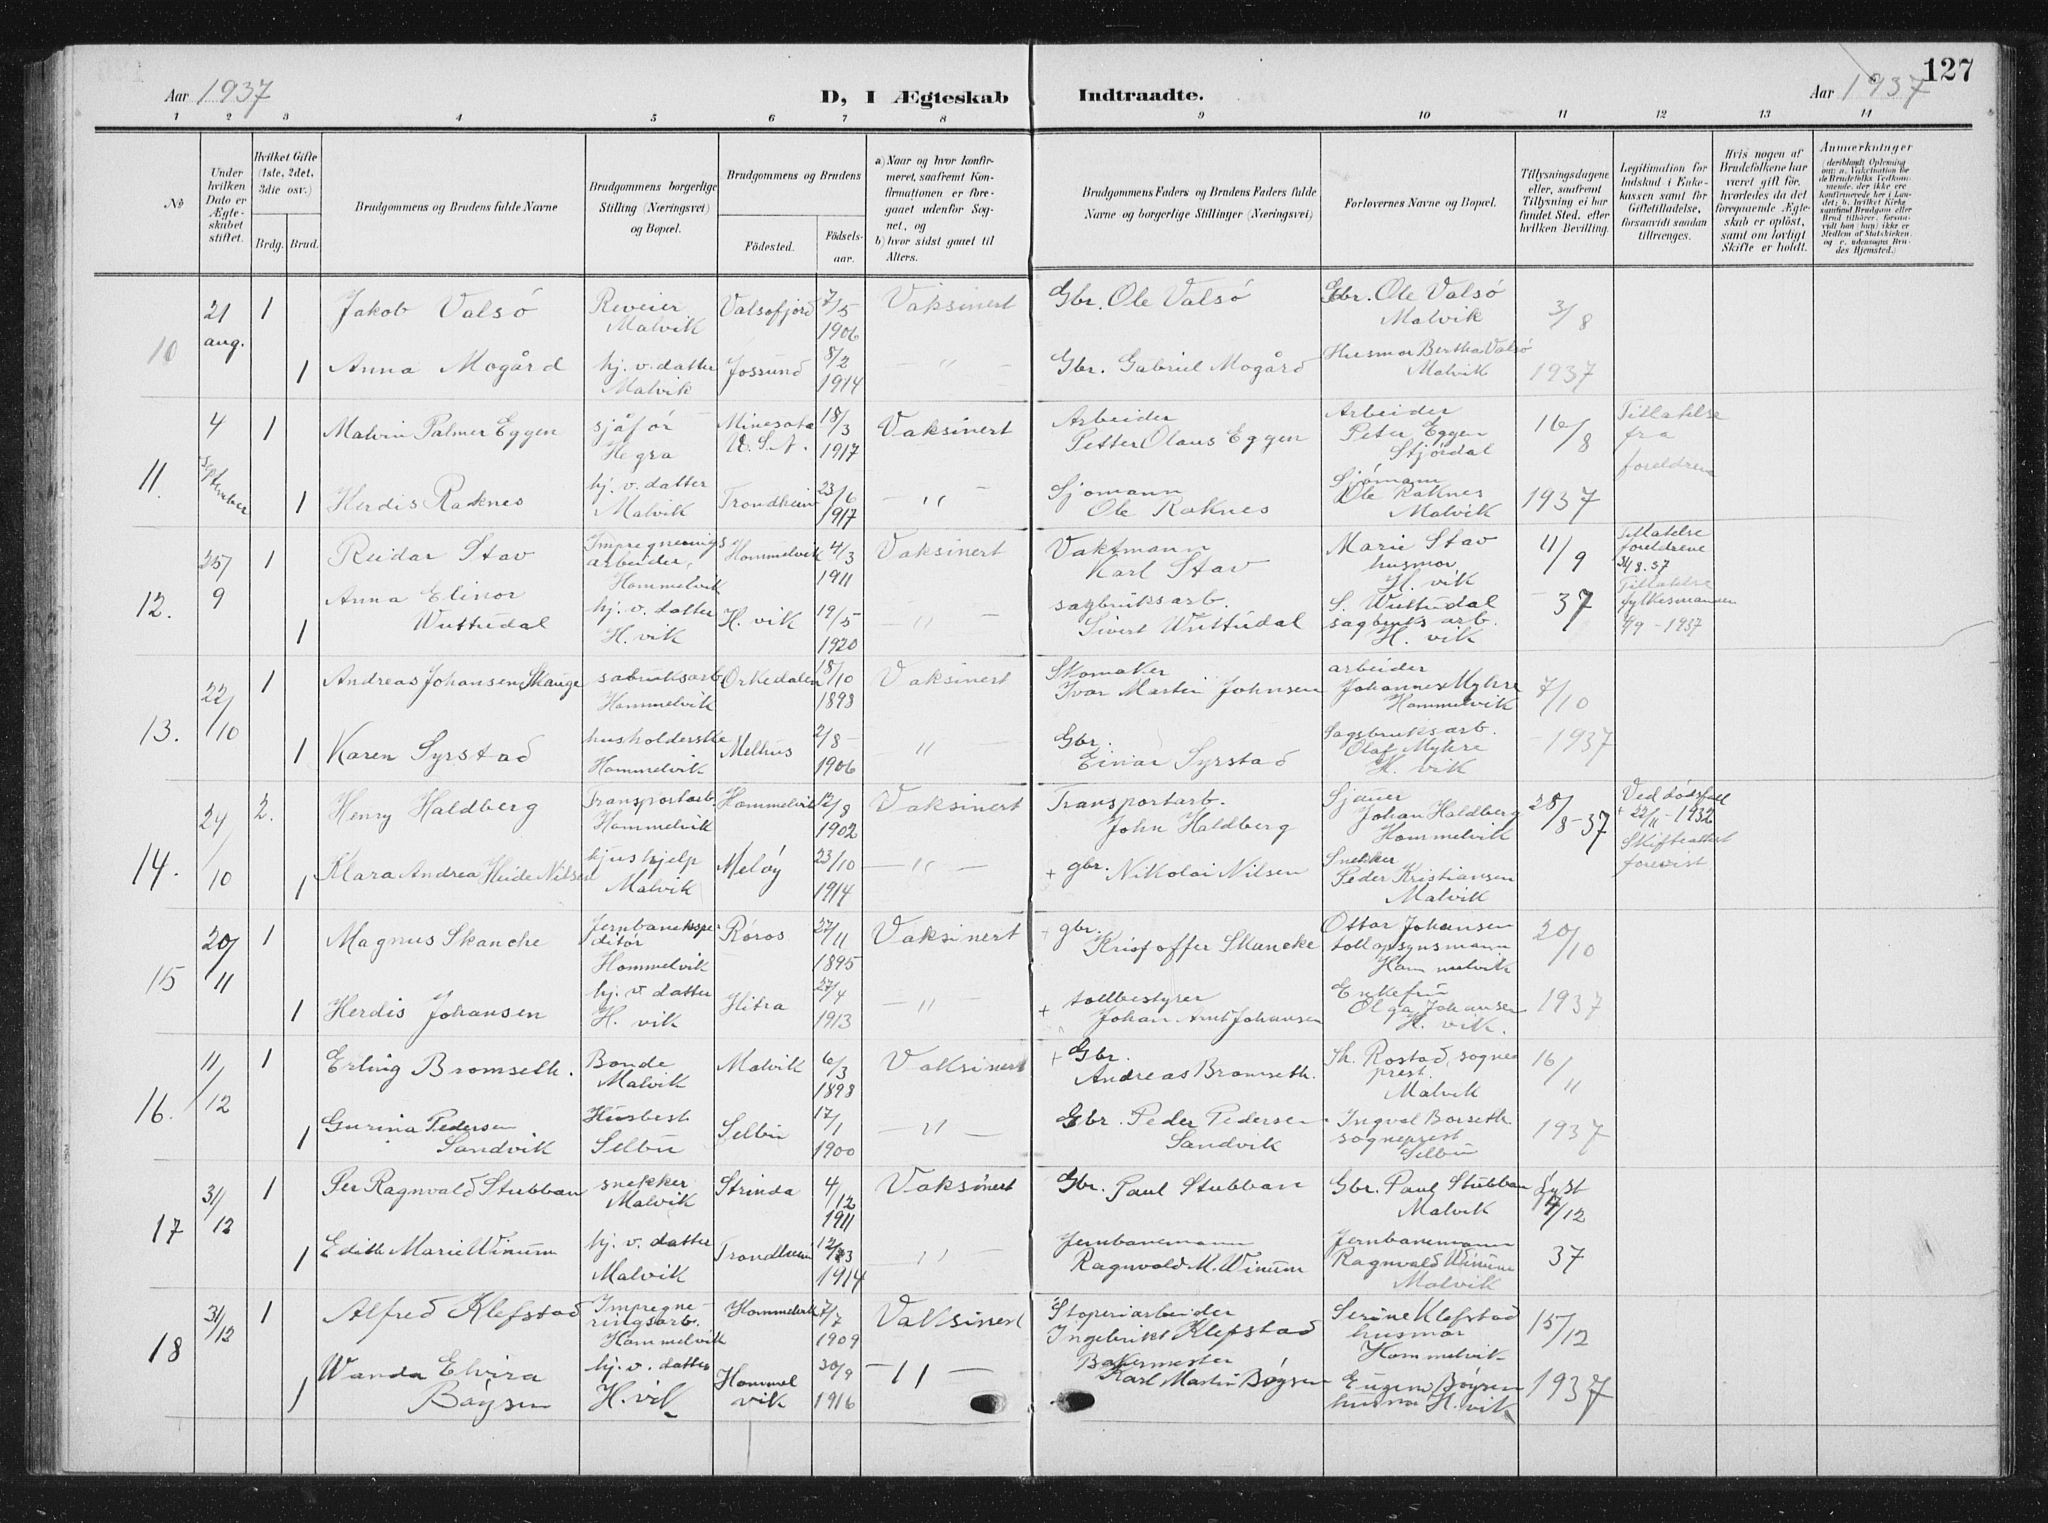 127
Aar 1937
D, I Ægteskab Indtraadte.
Aar 1937
1 2 3 4 5 6 7 8 9 10 11 12 13 14
No
Under hvilken Dato er Ægteskabet stiftet.
Hvilket Gifte (1ste, 2det, 3die osv.)
Brdg. Brud.
Brudgommens og Brudens fulde Navne
Brudgommens borgerlige Stilling (Næringsvei) og Bopæl.
Brudgommens og Brudens
Fødested.
Fødselsaar.
a) Naar og hvor konfirmeret, saafremt Konfirmationen er foregaaet udenfor Sognet, og
b) hvor sidst gaaet til Alters.
Brudgommens Faders og Brudens Faders fulde Navne og borgerlige Stillinger (Næringsvei)
Forlovernes Navne og Bopæl.
Tillysningsdagene eller, saafremt Tillysning ei har fundet Sted, efter hvilken Bevilling.
Legitimation for Indskud i Enkekassen samt for Giftetilladelse, forsaavidt saadan tiltrænges.
Hvis nogen af Brudefolkene har været gift før, hvorledes da det foregaaende Ægteskab er opløst, samt om lovligt Skifte er holdt.
Anmærkninger
10 21 aug. 1 Jakob Valsø Reveier Malvik Valsøfjord 7/5 1906 Vaksinert Gbr. Ole Valsø Gbr. Ole Valsø Malvik 3/8
1 Anna Mogård hj. v. datter Malvik Jossund 8/2 1914 — " — Gbr. Gabriel Mogård Husmor Bertha Valsø Malvik 1937
11. 4 September 1 Malvin Palmer Eggen sjåfør Hegra Minesota U.S.A. 18/3 1917 Vaksinert Arbeider Petter Olaus Eggen Arbeider Peter Eggen Stjørdal 16/8 Tillatelse fra foreldrene
1 Herdis Raknes hj. v. datter Malvik Trondheim 23/6 1917 — " — Sjømann Ole Raknes Sjømann Ole Raknes Malvik 1937
12. 25/9 1 Reidar Stav Impregnerings arbeider, Hommelvik Hommelvik 4/3 1911 Vaksinert Vaktmann Karl Stav Marie Stav husmor, H. vik 11/9 Tillatelse foreldrene
1 Anna Elinor Wuttudal hj. v. datter H. vik H. vik 19/5 1920 — " — sagbruksarb. Sivert Wuttudal S. Wuttudal sagbruks arb. H. vik - 37 Tillatelse fylkesmannen
13. 22/10 1 Andreas Johansen Skauge sabruksarb Hommelvik Orkedalen 18/10 1898 Vaksinert Skomaker Ivar Martin Johnsen arbeider Johannes Myhre Hommelvik 7/10
1 Karen Syrstad husholderske Hommelvik Melhus 2/8 1906 — " — Gbr. Einar Syrstad Sagsbruksarb. Olaf Myhre H. vik - 1937
14. 24/10 2. Henry Haldberg Transportarb. Hommelvik Hommelvik 12/8 1902 Vaksinert Transportarb. John Haldberg Sjauer Johan Haldberg Hommelvik 28/8-37 Ved dødsfall + 22/11 - 1932 Skifteattest forevist
1 Klara Andrea Heide Nilsen hushjelp Malvik Meløy 23/10 1914 — " — + gbr. Nikolai Nilsen Snekker Peder Kristiansen Malvik
15 20/11 1 Magnus Skanche Jernbaneekspeditør Hommelvik Røros 27/11 1895 Vaksinert + gbr. Kristoffer Skancke Ottar Johansen tollopsynsmann Hommelvik 20/10
1 Herdis Johansen hj. v. datter H. vik Hitra 27/4 1913 — " — + tollbestyrer Johan Arnt Johansen Enkefru Olga Johansen H. vik. 1937
16. 11/12 1 Erling Bromseth. Bonde Malvik Malvik 6/3 1898 Vaksinert + Gbr. Andreas Bromseth. Th. Rostad, sogneprest. Malvik 16/11
1 Gurina Pedersen Sandvik Husbest Selbu Selbu 17/1 1900 — " — Gbr. Peder Pedersen Sandvik Ingval Borseth sogneprest Selbu 1937
17 31/12 1 Per Ragnvald Stubban snekker Malvik Strinda 4/12 1911 Vaksinert Gbr. Paul Stubban Gbr. Paul Stubban Malvik Lyst 17/12
1 Edith Marie Winum hj. v. datter Malvik Trondheim 1914 — " — Jernbanemann Ragnvald M. Winum Jernbanemann Ragnvald Winum Malvik 37
18 31/12 1 Alfred Klefstad Impregneringsarb. Hommelvik Hommelvik 7/7 1909 Vaksinert Støperiarbeider Ingebrikt Klefstad Serine Klefstad husmor Hommelvik 15/12
1 Wanda Elvira Bøysen hj. v. datter H. vik Hommelvik 30/9 1916 — " — Bakermester Karl Martin Bøysen Eugene Bøysen husmor H. vik 1937